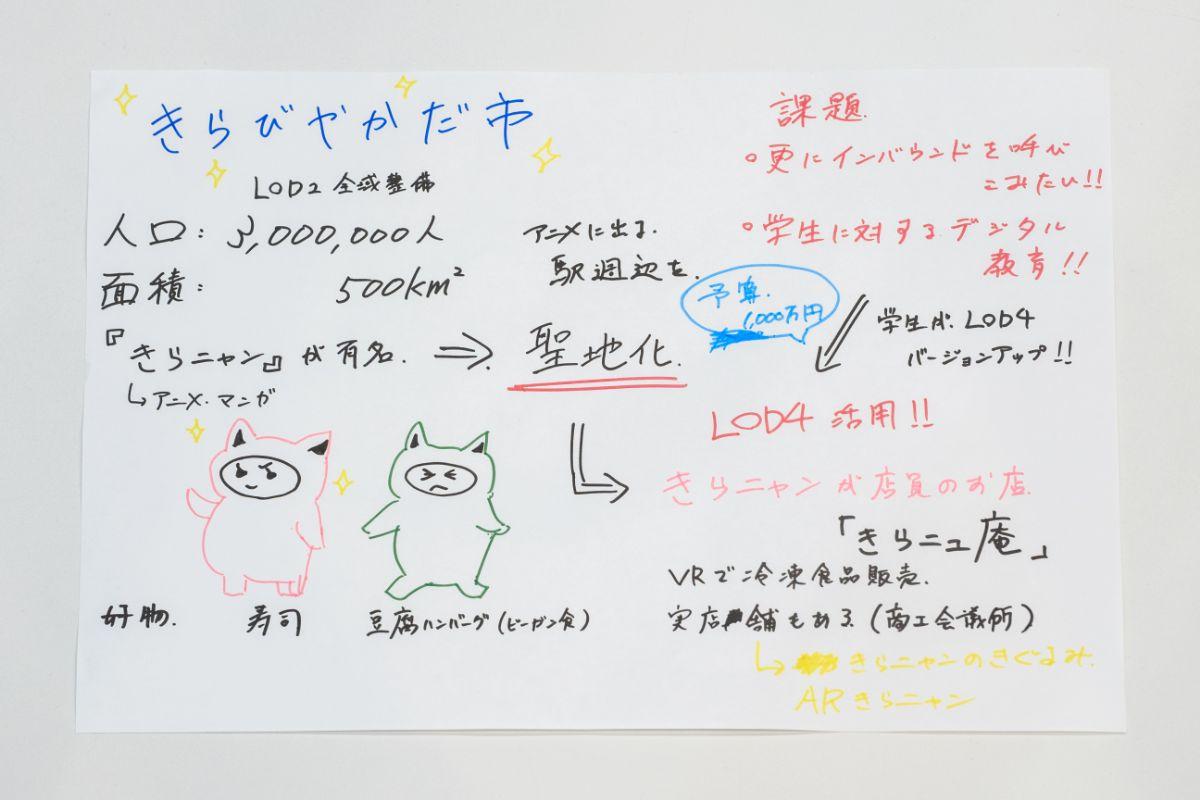 きらびやかだ市
LOD2 全域整備
人口: 3,000,000人
面積: 500km²
『きらニャン』が有名.
↳アニメ・マンガ
⇒
アニメに出る
駅週辺を
聖地化.
好物.
寿司
豆腐ハンバーグ(ビーガン食)
課題.
○更にインバウンドを呼び
こみたい!!
○学生に対するデジタル
教育!!
予算.
1,000万円
学生が LOD4
バージョンアップ!!
LOD4 活用!!
きらニャンが店員のお店.
「きらニュ庵」
VRで冷凍食品販売.
実店舗もある(商工会議所)
↳きらニャンのきぐるみ.
ARきらニャン